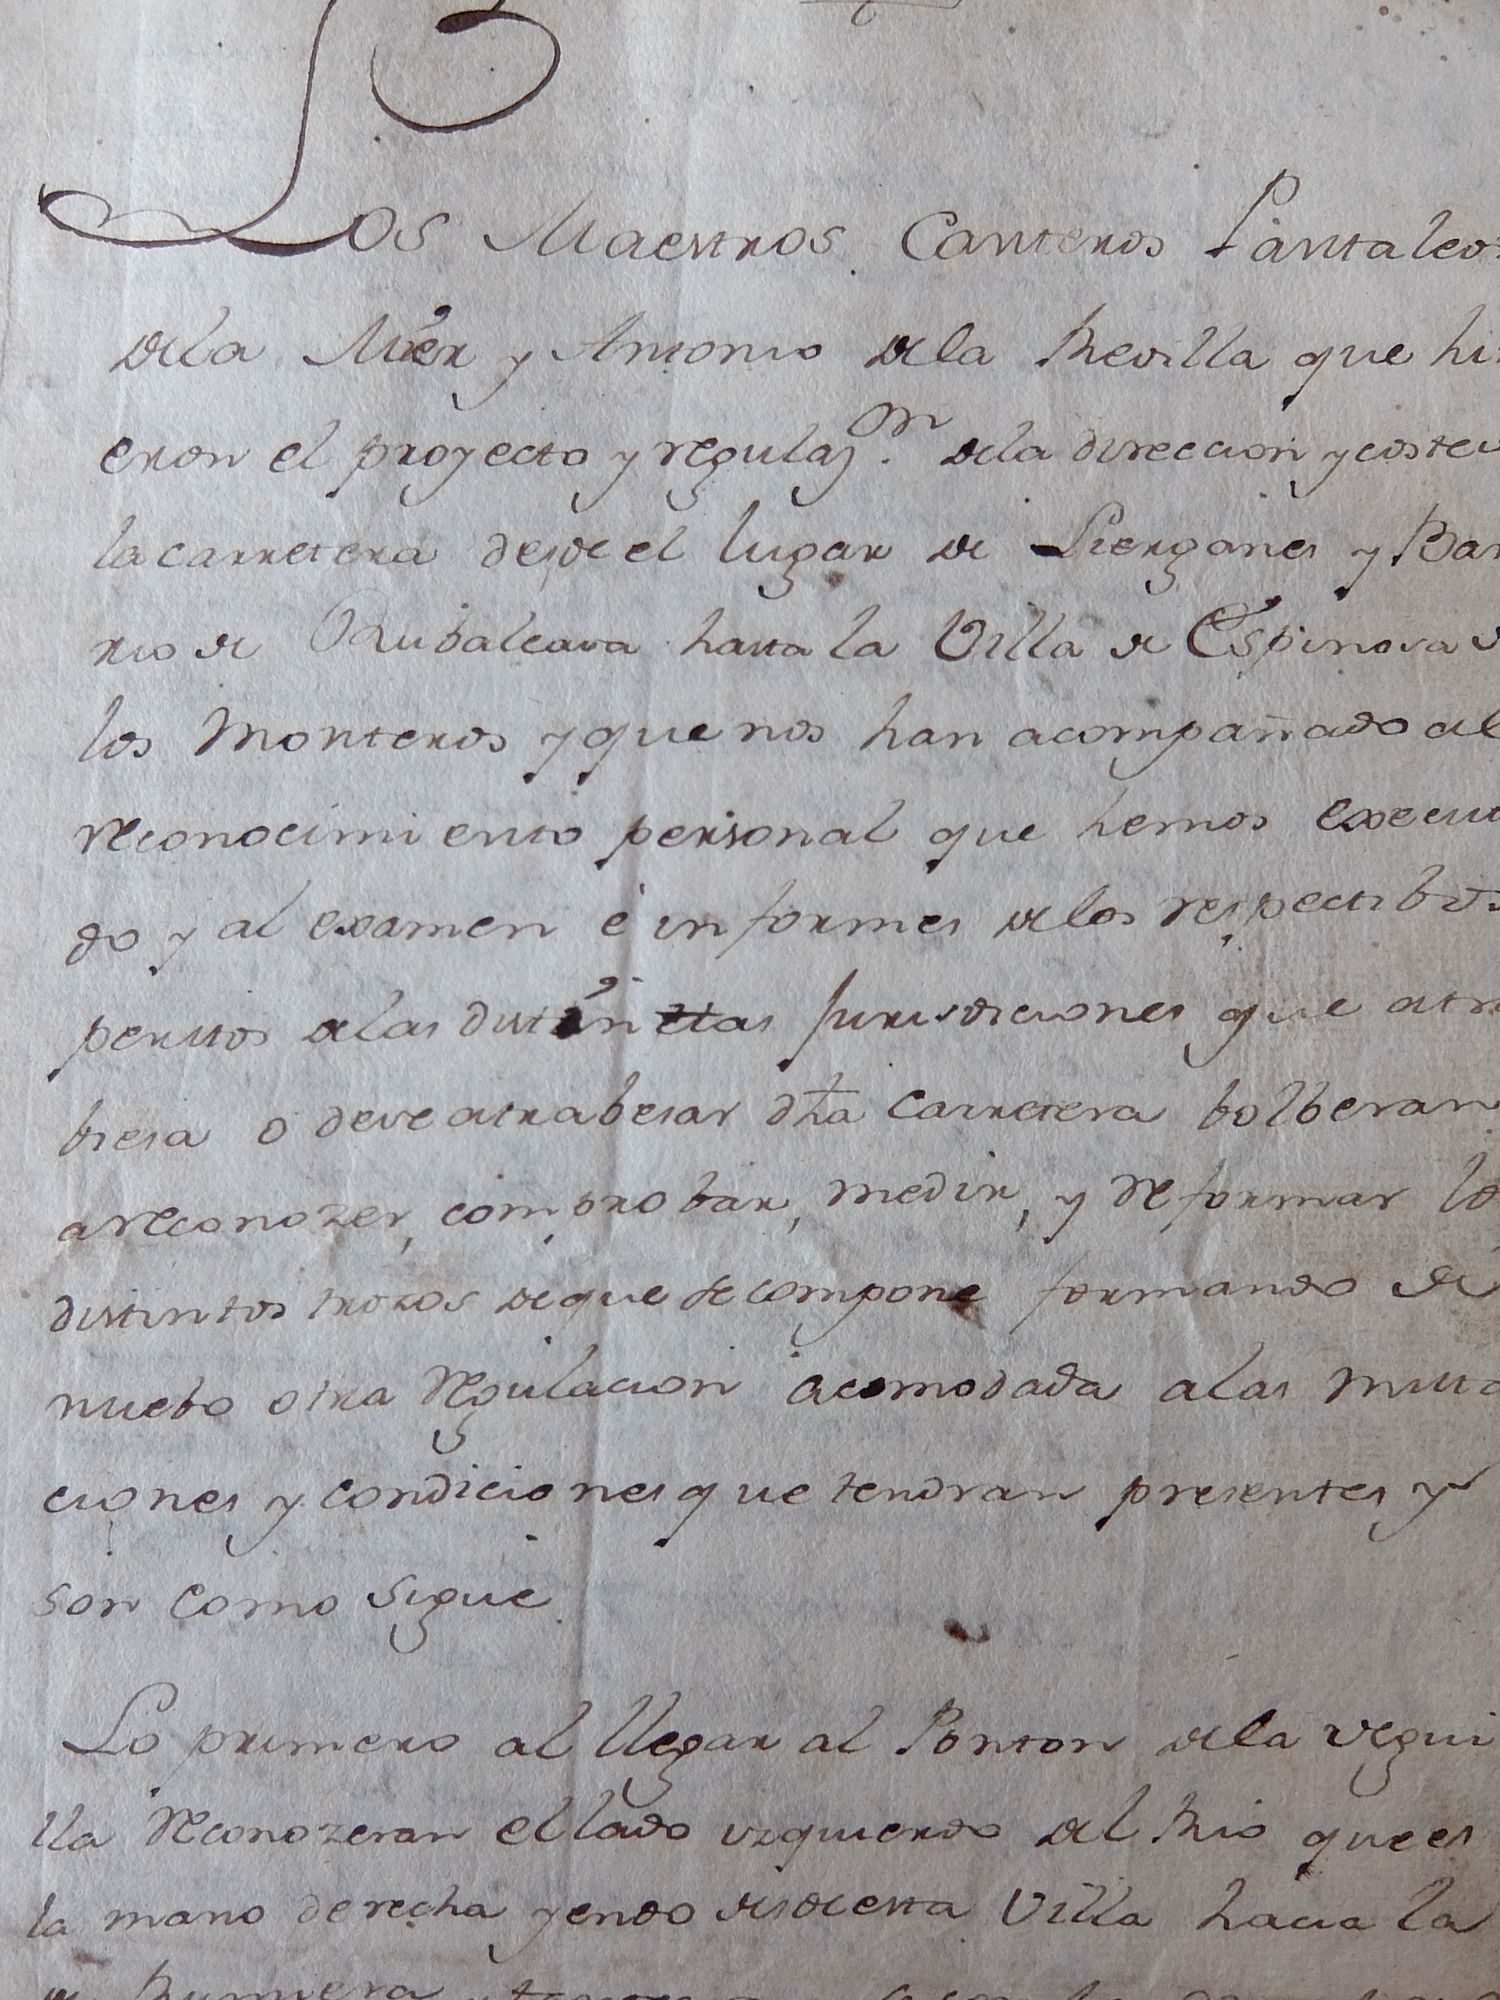 Los Maestros Canteros Pantaleon
dela Mier y Antonio dela Revilla que hi
cieron el proyecto y regulaz.on dela direccion y coste
la carretera desde el lugar de Lierganes y Bar
rio de Rubalcava hasta la Villa de Espinosa d
los Monteros y que nos han acompañado al
reconocimiento personal que hemos executa
do y al examen é informes delos respectibos
peritos delas distintas Jurisdiciones que atra
biesa o deve atrabesar dha Carretera bolberan
a reconozer, comprobar, medir, y reformar lo
distintos trozos de que se compone formando de
nuebo otra regulacion acomodada a las muta
ciones y condiciones que tendran presentes y
son como sigue
Lo primero al llegar al Ponton dela vegui
lla reconozeran el lado izquierdo del Rio que es
la mano derecha yendo desde esta Villa hacia la
de